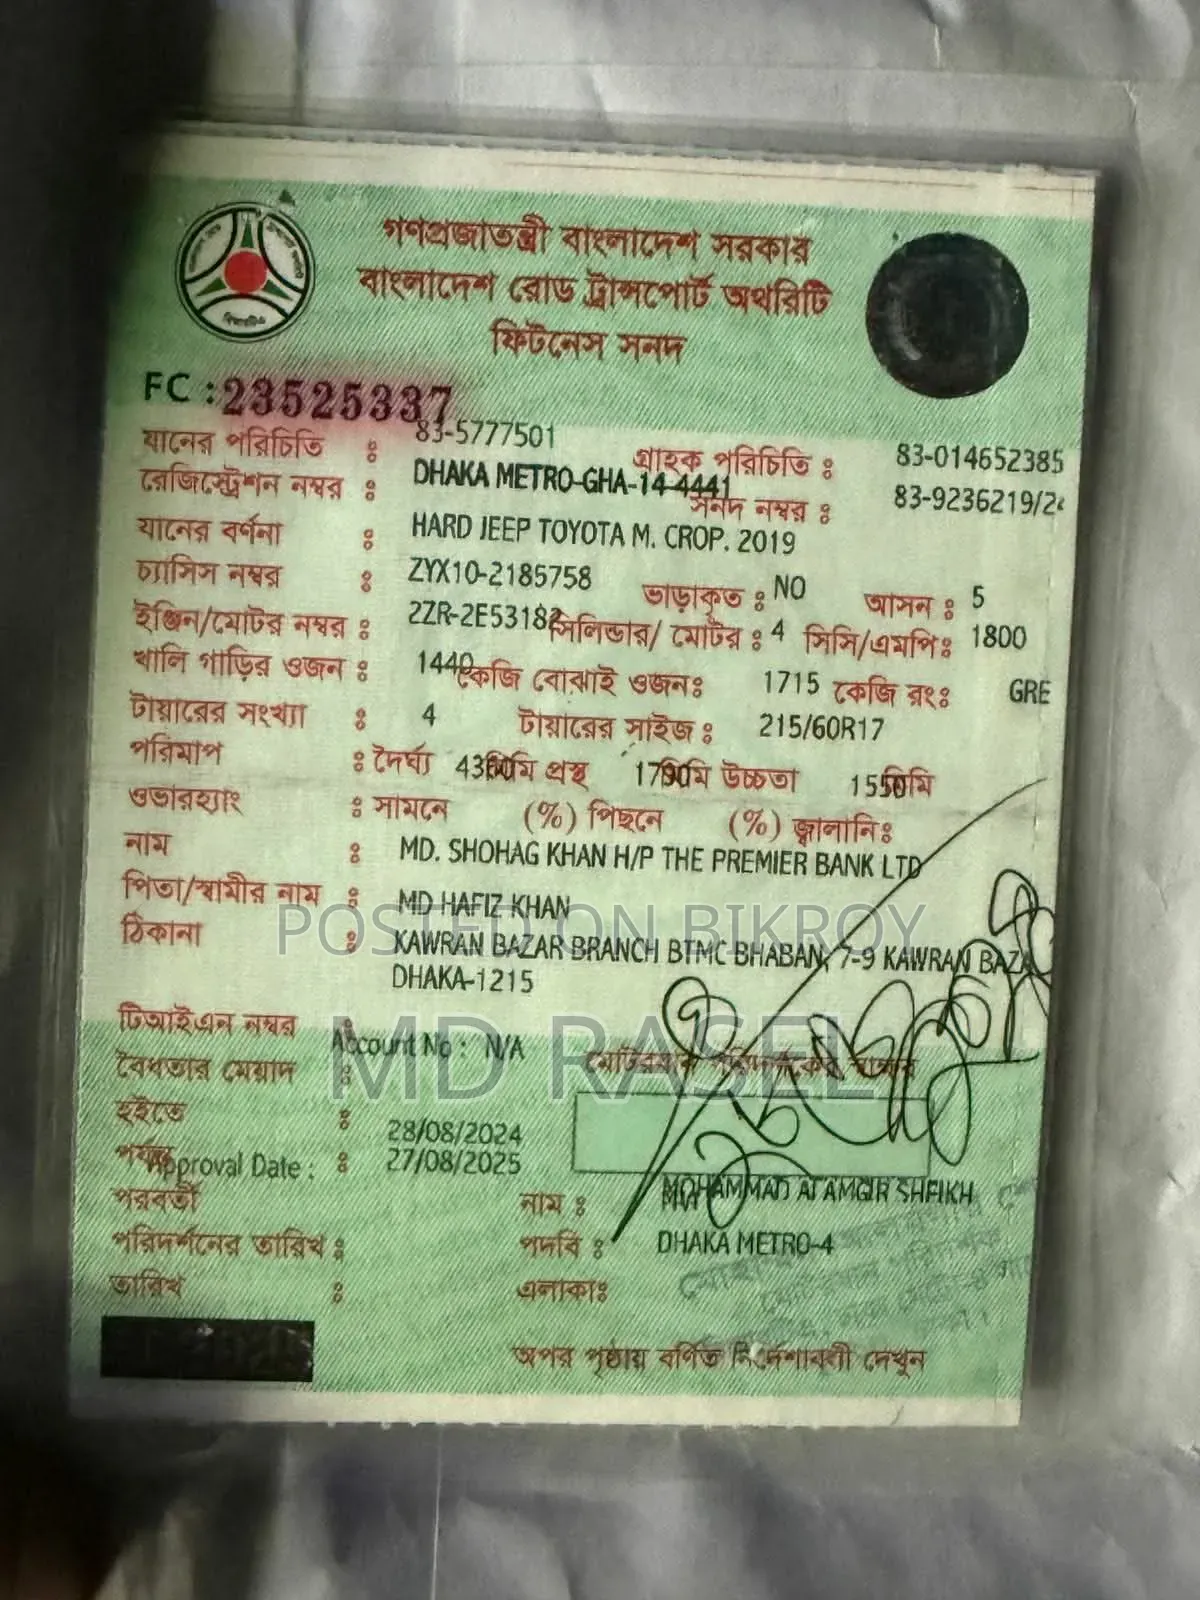 গণপ্রজাতন্ত্রী বাংলাদেশ সরকার
বাংলাদেশ রোড ট্রান্সপোর্ট অথরিটি
ফিটনেস সনদ
FC : 23525337
যানের পরিচিতি : 83-5777501 গ্রাহক পরিচিতি : 83-014652385
রেজিস্ট্রেশন নম্বর : DHAKA METRO-GHA-14-4441 সনদ নম্বর : 83-9236219/2
যানের বর্ণনা : HARD JEEP TOYOTA M. CROP. 2019
চ্যাসিস নম্বর : ZYX10-2185758 ভাড়াকৃত : NO আসন : 5
ইঞ্জিন/মোটর নম্বর : 2ZR-2E53182 সিলিন্ডার/ মোটর : 4 সিসি/এমপি: 1800
খালি গাড়ির ওজন : 1440 কেজি বোঝাই ওজন: 1715 কেজি রং: GRE
টায়ারের সংখ্যা : 4 টায়ারের সাইজ : 215/60R17
পরিমাপ : দৈর্ঘ্য মিমি প্রস্থ মিমি উচ্চতা 1550 মিমি
ওভারহ্যাং : সামনে (%) পিছনে (%) জ্বালানি:
নাম : MD. SHOHAG KHAN H/P THE PREMIER BANK LTD
পিতা/স্বামীর নাম : MD HAFIZ KHAN
POSTED ON BIKROY
ঠিকানা : KAWRAN BAZAR BRANCH BTMC BHABAN, 7-9 KAWRAN BAZA
DHAKA-1215
টিআইএন নম্বর :
Account No : N/A মোটরযান পরিদর্শকের স্বাক্ষর
MD RASEL
বৈধতার মেয়াদ :
হইতে : 28/08/2024
পর্যন্ত : 27/08/2025
Approval Date :
পরবর্তী নাম : MOHAMMAD ALAMGIR SHEIKH
পরিদর্শনের তারিখ : পদবি : DHAKA METRO-4
তারিখ : এলাকা:
অপর পৃষ্ঠায় বর্ণিত নির্দেশাবলী দেখুন